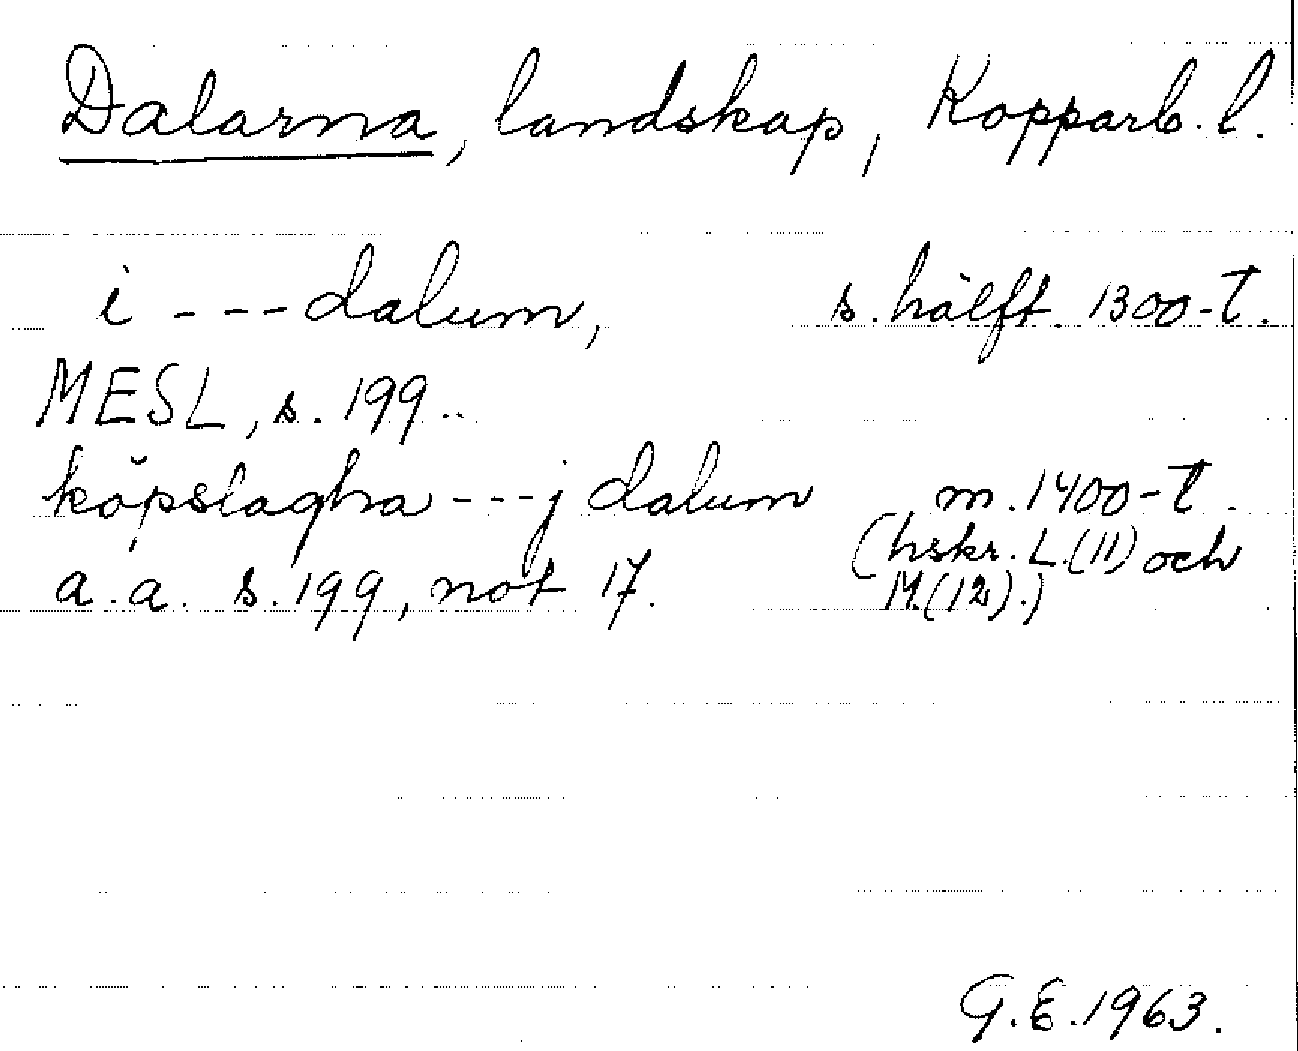 Dalarna, landskap, Kopparb. l.
i - - - dalum, s. hälft. 1300-t.
MESL, s. 199.
köpslagha - - - j dalum m. 1400-t.
(hskr. L.(11) och
a. a. s. 199, not 17. M.(12).)
G.E. 1963.